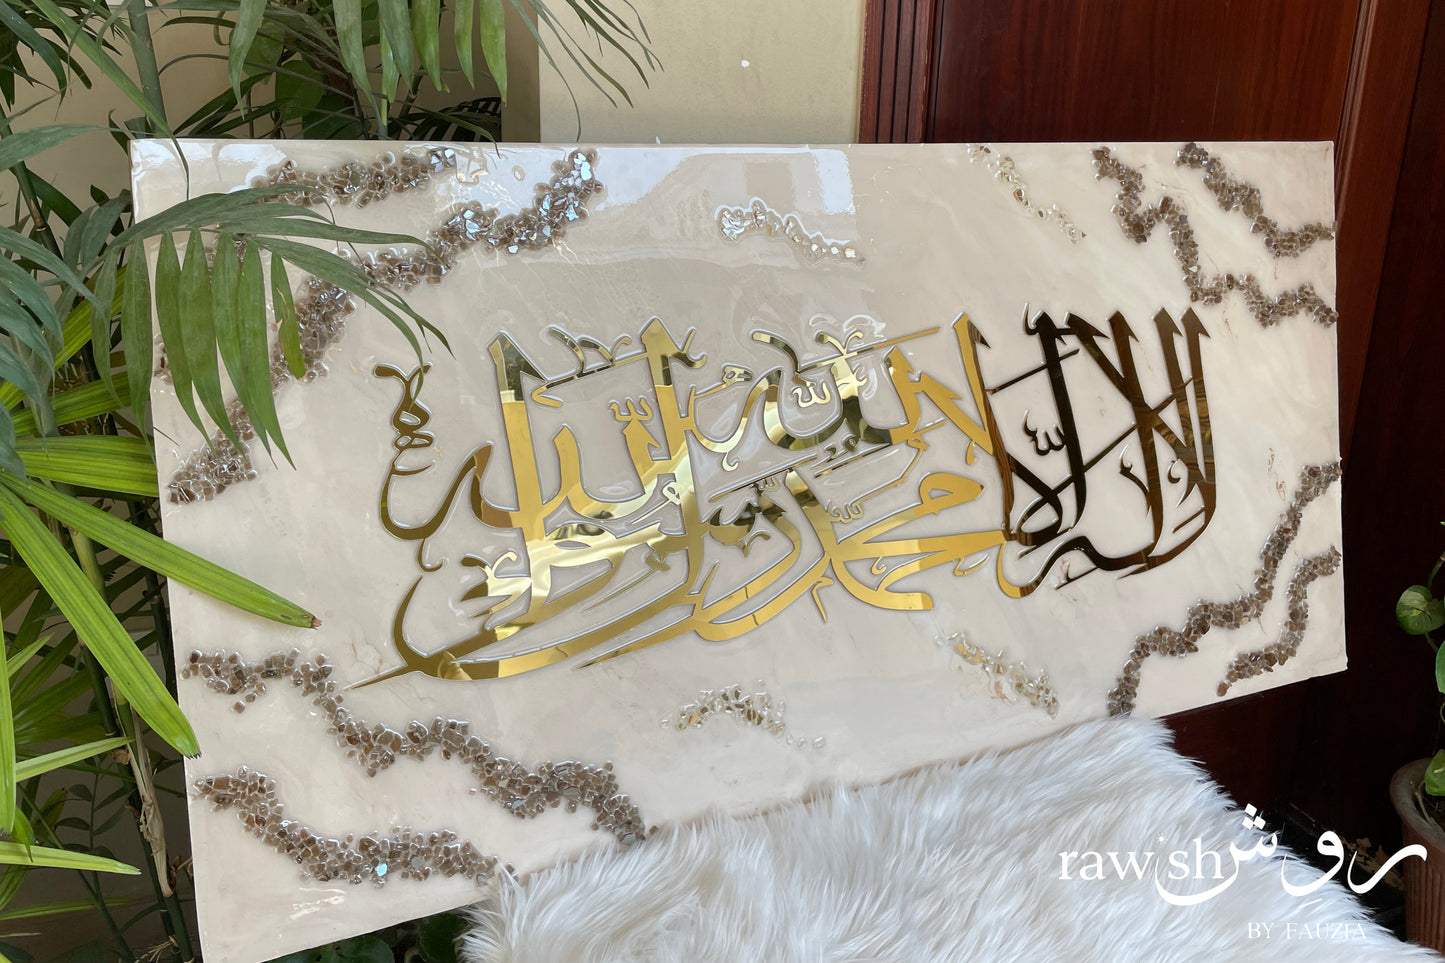 لا إله إلا الله محمد رسول الله
rawish روش
BY FAUZIA